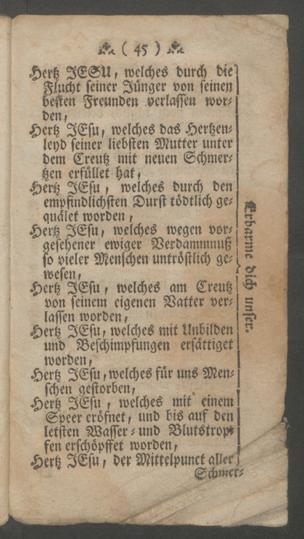 ( 45 )
Hertz JESU, welches durch die
Flucht seiner Jünger von seinen
besten Freunden verlassen wor-
den,
Hertz JEsu, welches das Hertzen-
leyd seiner liebsten Mutter unter
dem Creutz mit neuen Schmer-
tzen erfüllet hat,
Hertz JEsu, welches durch den
empfindlichsten Durst tödtlich ge-
quälet worden,
Hertz JEsu, welches wegen vor-
gesehener ewiger Verdammnuß
so vieler Menschen untröstlich ge-
wesen,
Hertz JEsu, welches am Creutz
von seinem eigenen Vatter ver-
lassen worden,
Hertz JEsu, welches mit Unbilden
und Beschimpfungen ersättiget
worden,
Hertz JEsu, welches für uns Men-
schen gestorben,
Hertz JEsu, welches mit einem
Speer eröfnet, und bis auf den
letsten Wasser- und Blutstrop-
fen erschöpffet worden,
Hertz JEsu, der Mittelpunct aller
Schmer-
Erbarme dich unser.